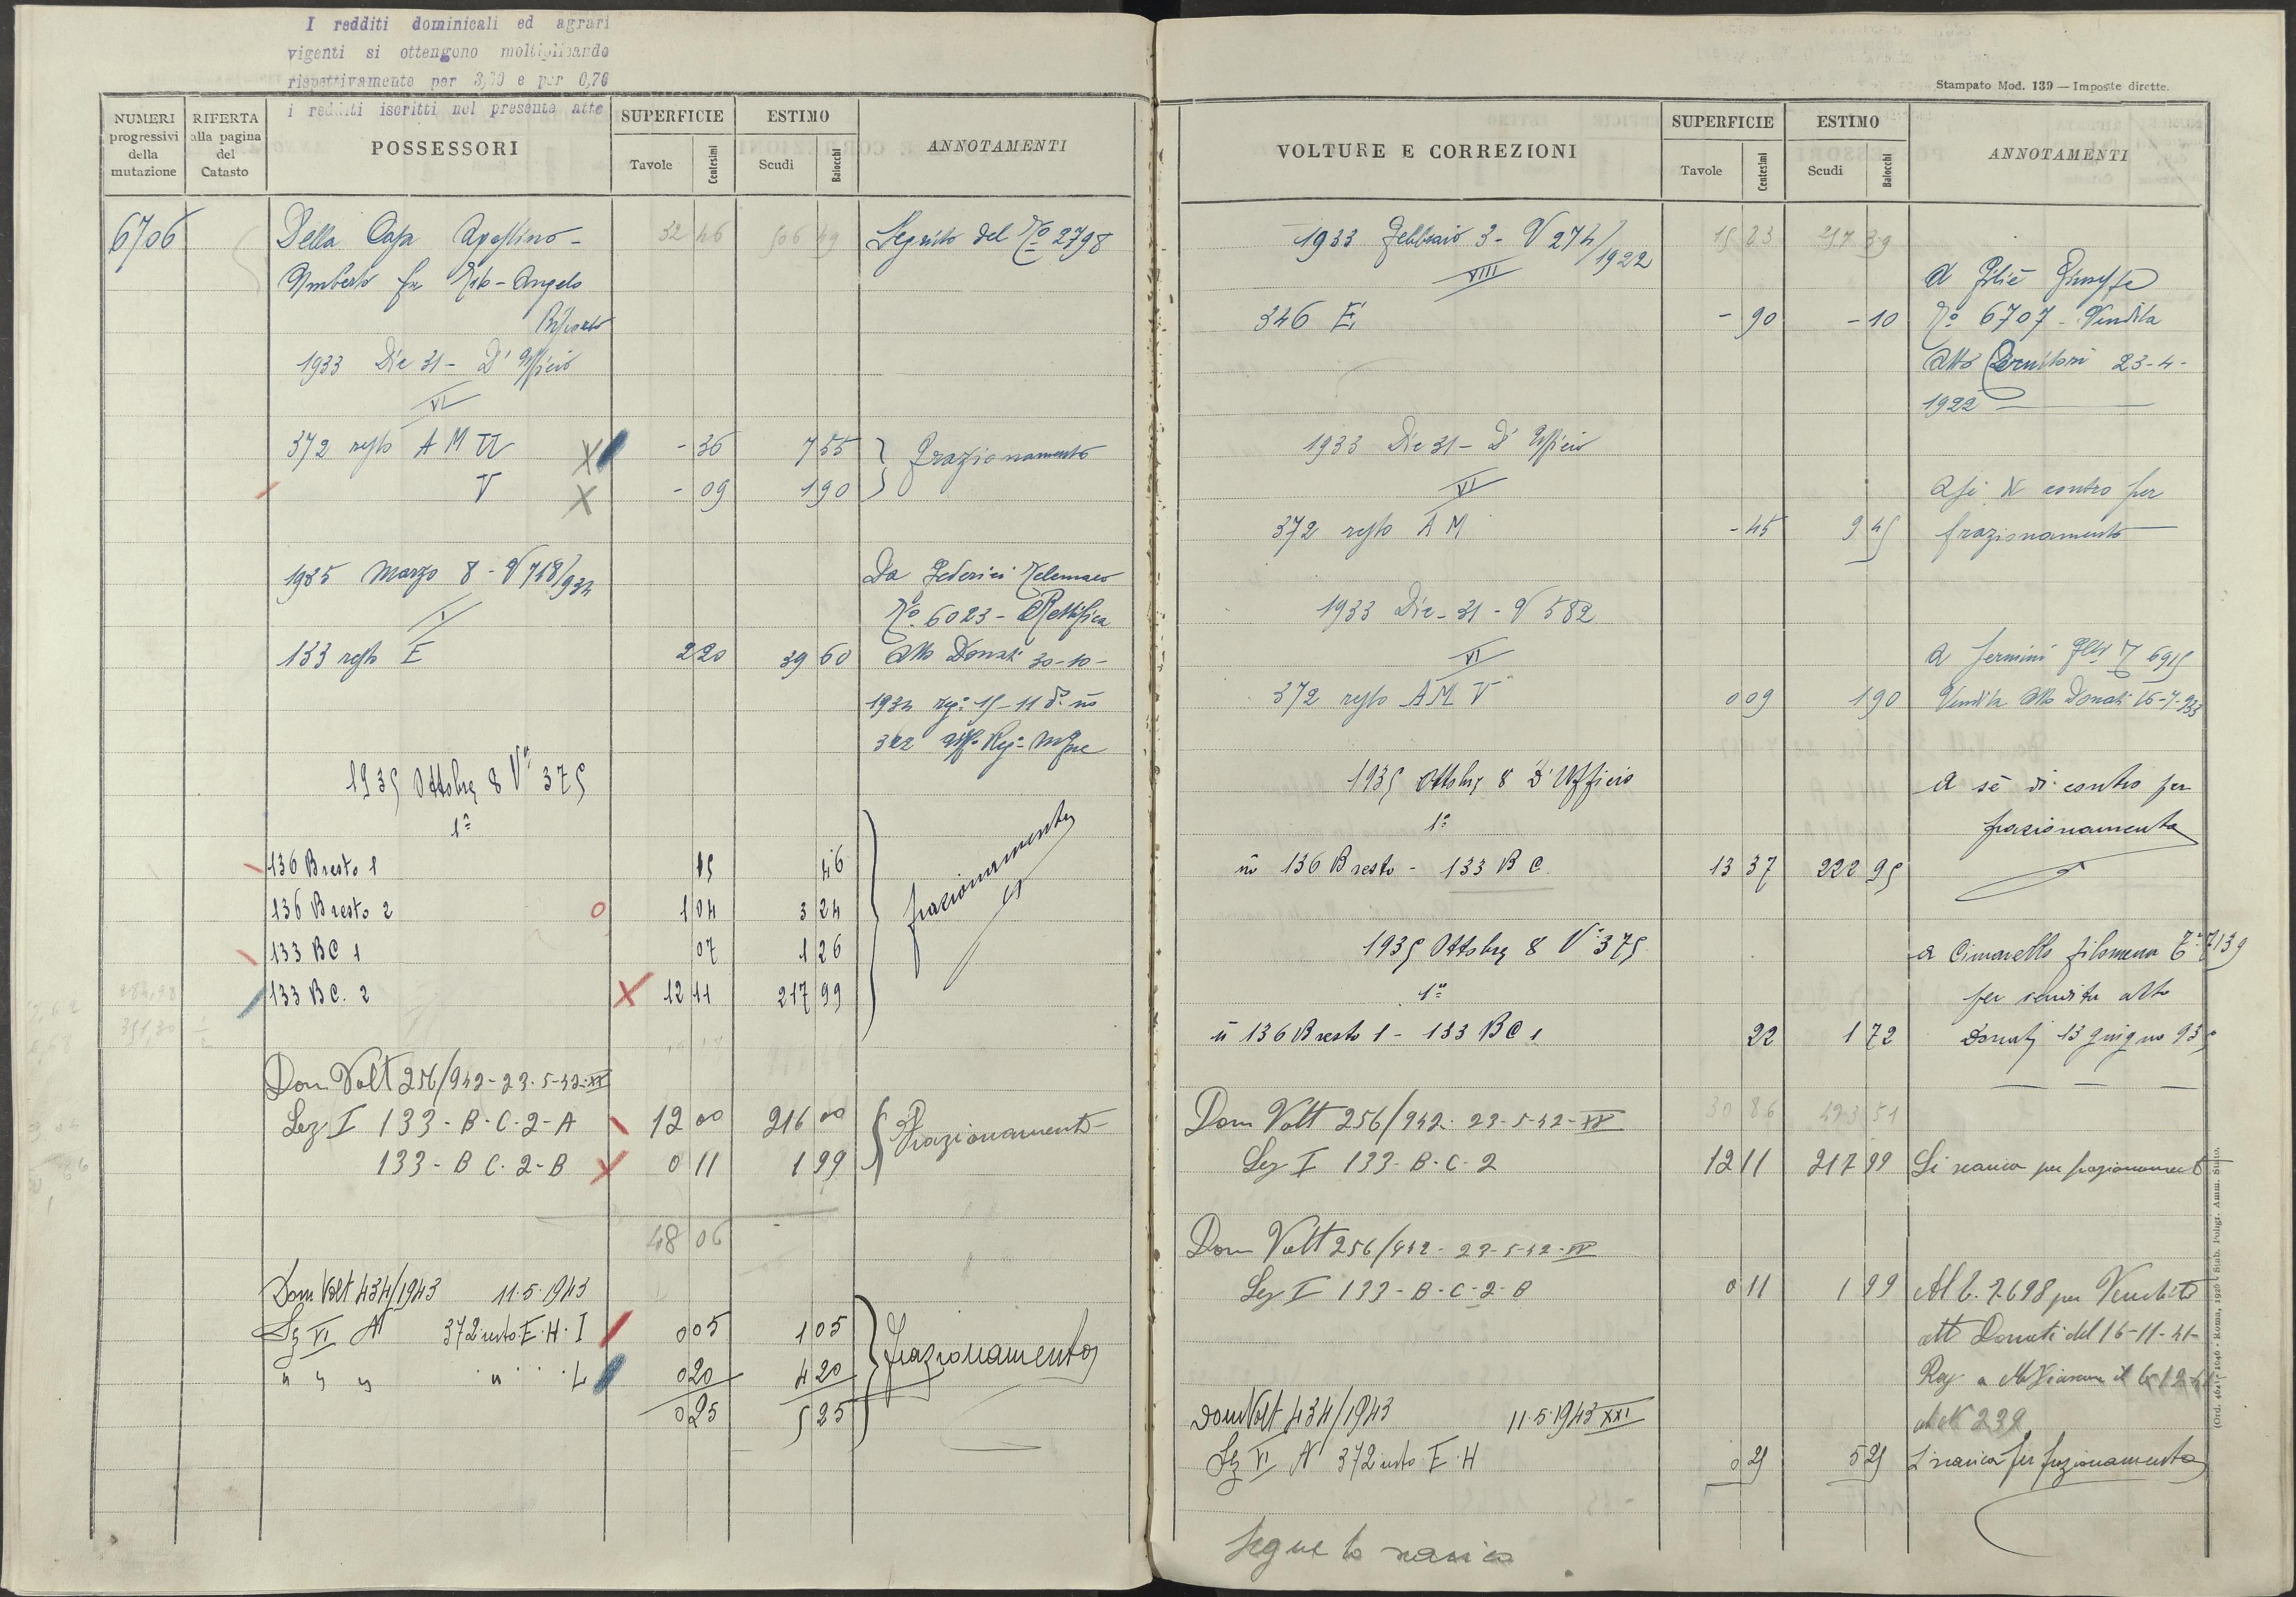 I redditi dominicali ed agrari
vigenti si ottengono moltiplicando
rispettivamente per 3,30 e per 0,70
i redditi iscritti nel presente atto
NUMERI progressivi della mutazione
RIFERTA alla pagina del Catasto
POSSESSORI
SUPERFICIE
Tavole Centesimi
ESTIMO
Scudi Baiocchi
ANNOTAMENTI
6706 Della Casa Agostino- 32 46 506 49 Seguito del No 2798
Umberto fu Angelo
1933 Dic 31 - D'Ufficio
VI
372 resto A M U - 36 7 55 frazionamento
V - 09 1 90
1935 Marzo 8 - V 718/934 Da Federici Telemaco
I No 6023 - Rettifica
133 resto E 2 20 39 60 Atto Donati 30-10-
1934 reg: 15-11 do no
322
1935 Ottobre 8 Va 375
1a
136 B resto 1 15 46
136 B resto 2 1 04 3 24 frazionamento
133 B C 1 07 1 26
133 B C. 2 12 11 217 99
Dom Volt 256/942- 23-5-42-XX
Sez I 133-B-C-2-A 12 00 216 00 Frazionamento
133-B C-2-B 0 11 1 99
48 06
Dom Volt 434/1943 11.5.1943
Sz VI N 372 resto E.H. I 0 05 1 05
" " " " L 0 20 4 20 frazionamento
0 25 5 25
Stampato Mod. 139 — Imposte dirette.
VOLTURE E CORREZIONI
SUPERFICIE
Tavole Centesimi
ESTIMO
Scudi Baiocchi
ANNOTAMENTI
1933 Febbraio 3 - V 274/1922 15 23 217 39
VIII A Giuseppe
346 E - 90 - 10 No 6707 - Vendita
Atto 23-4-
1922
1933 Dic 31 - D'Ufficio
VI A se di contro per
372 resto A M - 45 9 45 frazionamento
1933 Dic - 31 - V 582
VI A 6915
372 resto A M V 0 09 1 90 Vendita Atto Donati 16-7-933
1935 Ottobre 8 D'Ufficio A sè di contro per
1a frazionamento
ni 136 B resto - 133 B C. 13 37 222 95
1935 Ottobre 8 Va 375 a Cimarello filomena 7139
1a per vendita atto
ni 136 B resto 1 - 133 B C 1 22 1 72 Donati 13 giugno 935
Dom Volt 256/942. 23-5-42-XX 30 86 423 51
Sez I 133-B-C-2 12 11 217 99 Si scarica per frazionamento
Dom Volt 256/942- 23-5-42-XX
Sez I 133-B-C-2-B 0 11 1 99 Al 7698 per Vendita
att Donati del 16-11-41-
Reg a
al N 239
Dom Volt 434/1943 11.5.1943 XXI
Sz VI N 372 resto E.H 0 25 5 25 Si scarica per frazionamento
Segue lo scarico